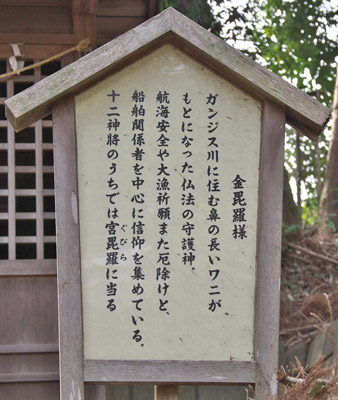 金毘羅様
ガンジス川に住む鼻の長いワニが
もとになった仏法の守護神。
航海安全や大漁祈願また厄除けと、
船舶関係者を中心に信仰を集めている。
十二神將のうちでは宮毘羅に当る
ぐびら